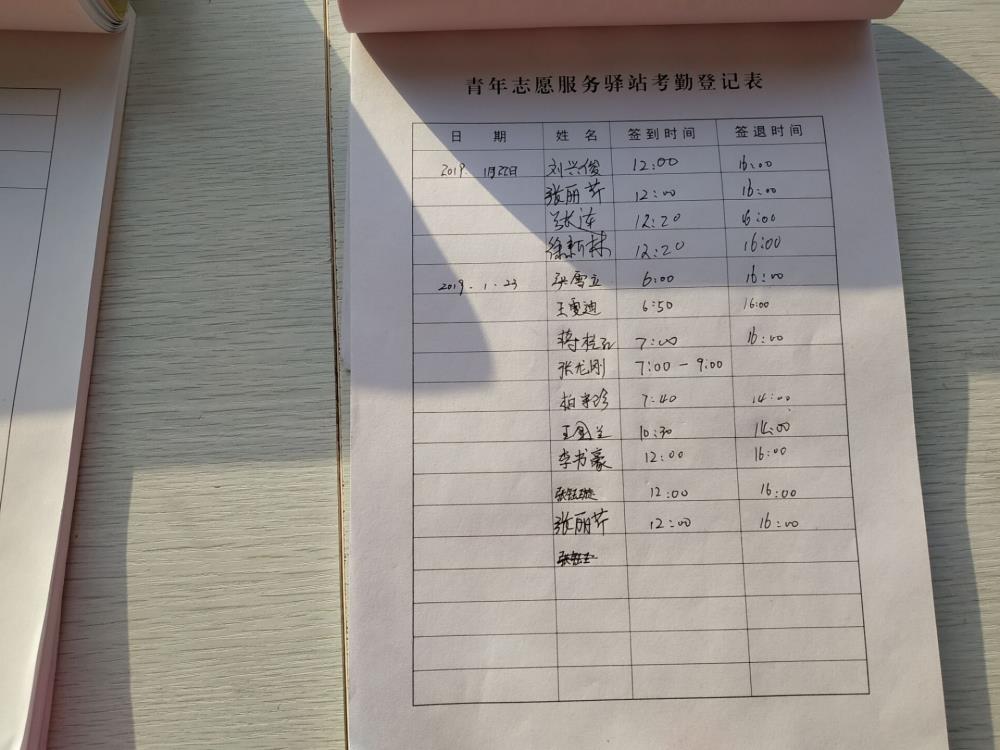 青年志愿服务驿站考勤登记表
日 期 姓 名 签到时间 签退时间
2019. 1月22日 刘兴俊 12:00 16:00
张丽芹 12:00 16:00
张涛 12:20 16:00
徐新林 12:20 16:00
2019.1.23 雪立 6:00 16:00
王雯迪 6:50 16:00
蒋桂红 7:00 16:00
张龙刚 7:00-9:00
柏 珍 7:40 14:00
王国兰 10:30 14:00
李书豪 12:00 16:00
张钰璇 12:00 16:00
张丽芹 12:00 16:00